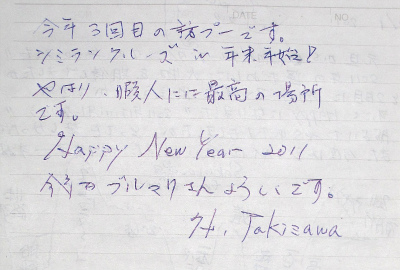 今年3回目の訪プーです。
シミランクルーズ in 年末年始!
やはり、暇人にに最高の場所
です。
Happy New Year 2011
ブルマリさんよろしいです。
H. Takizawa